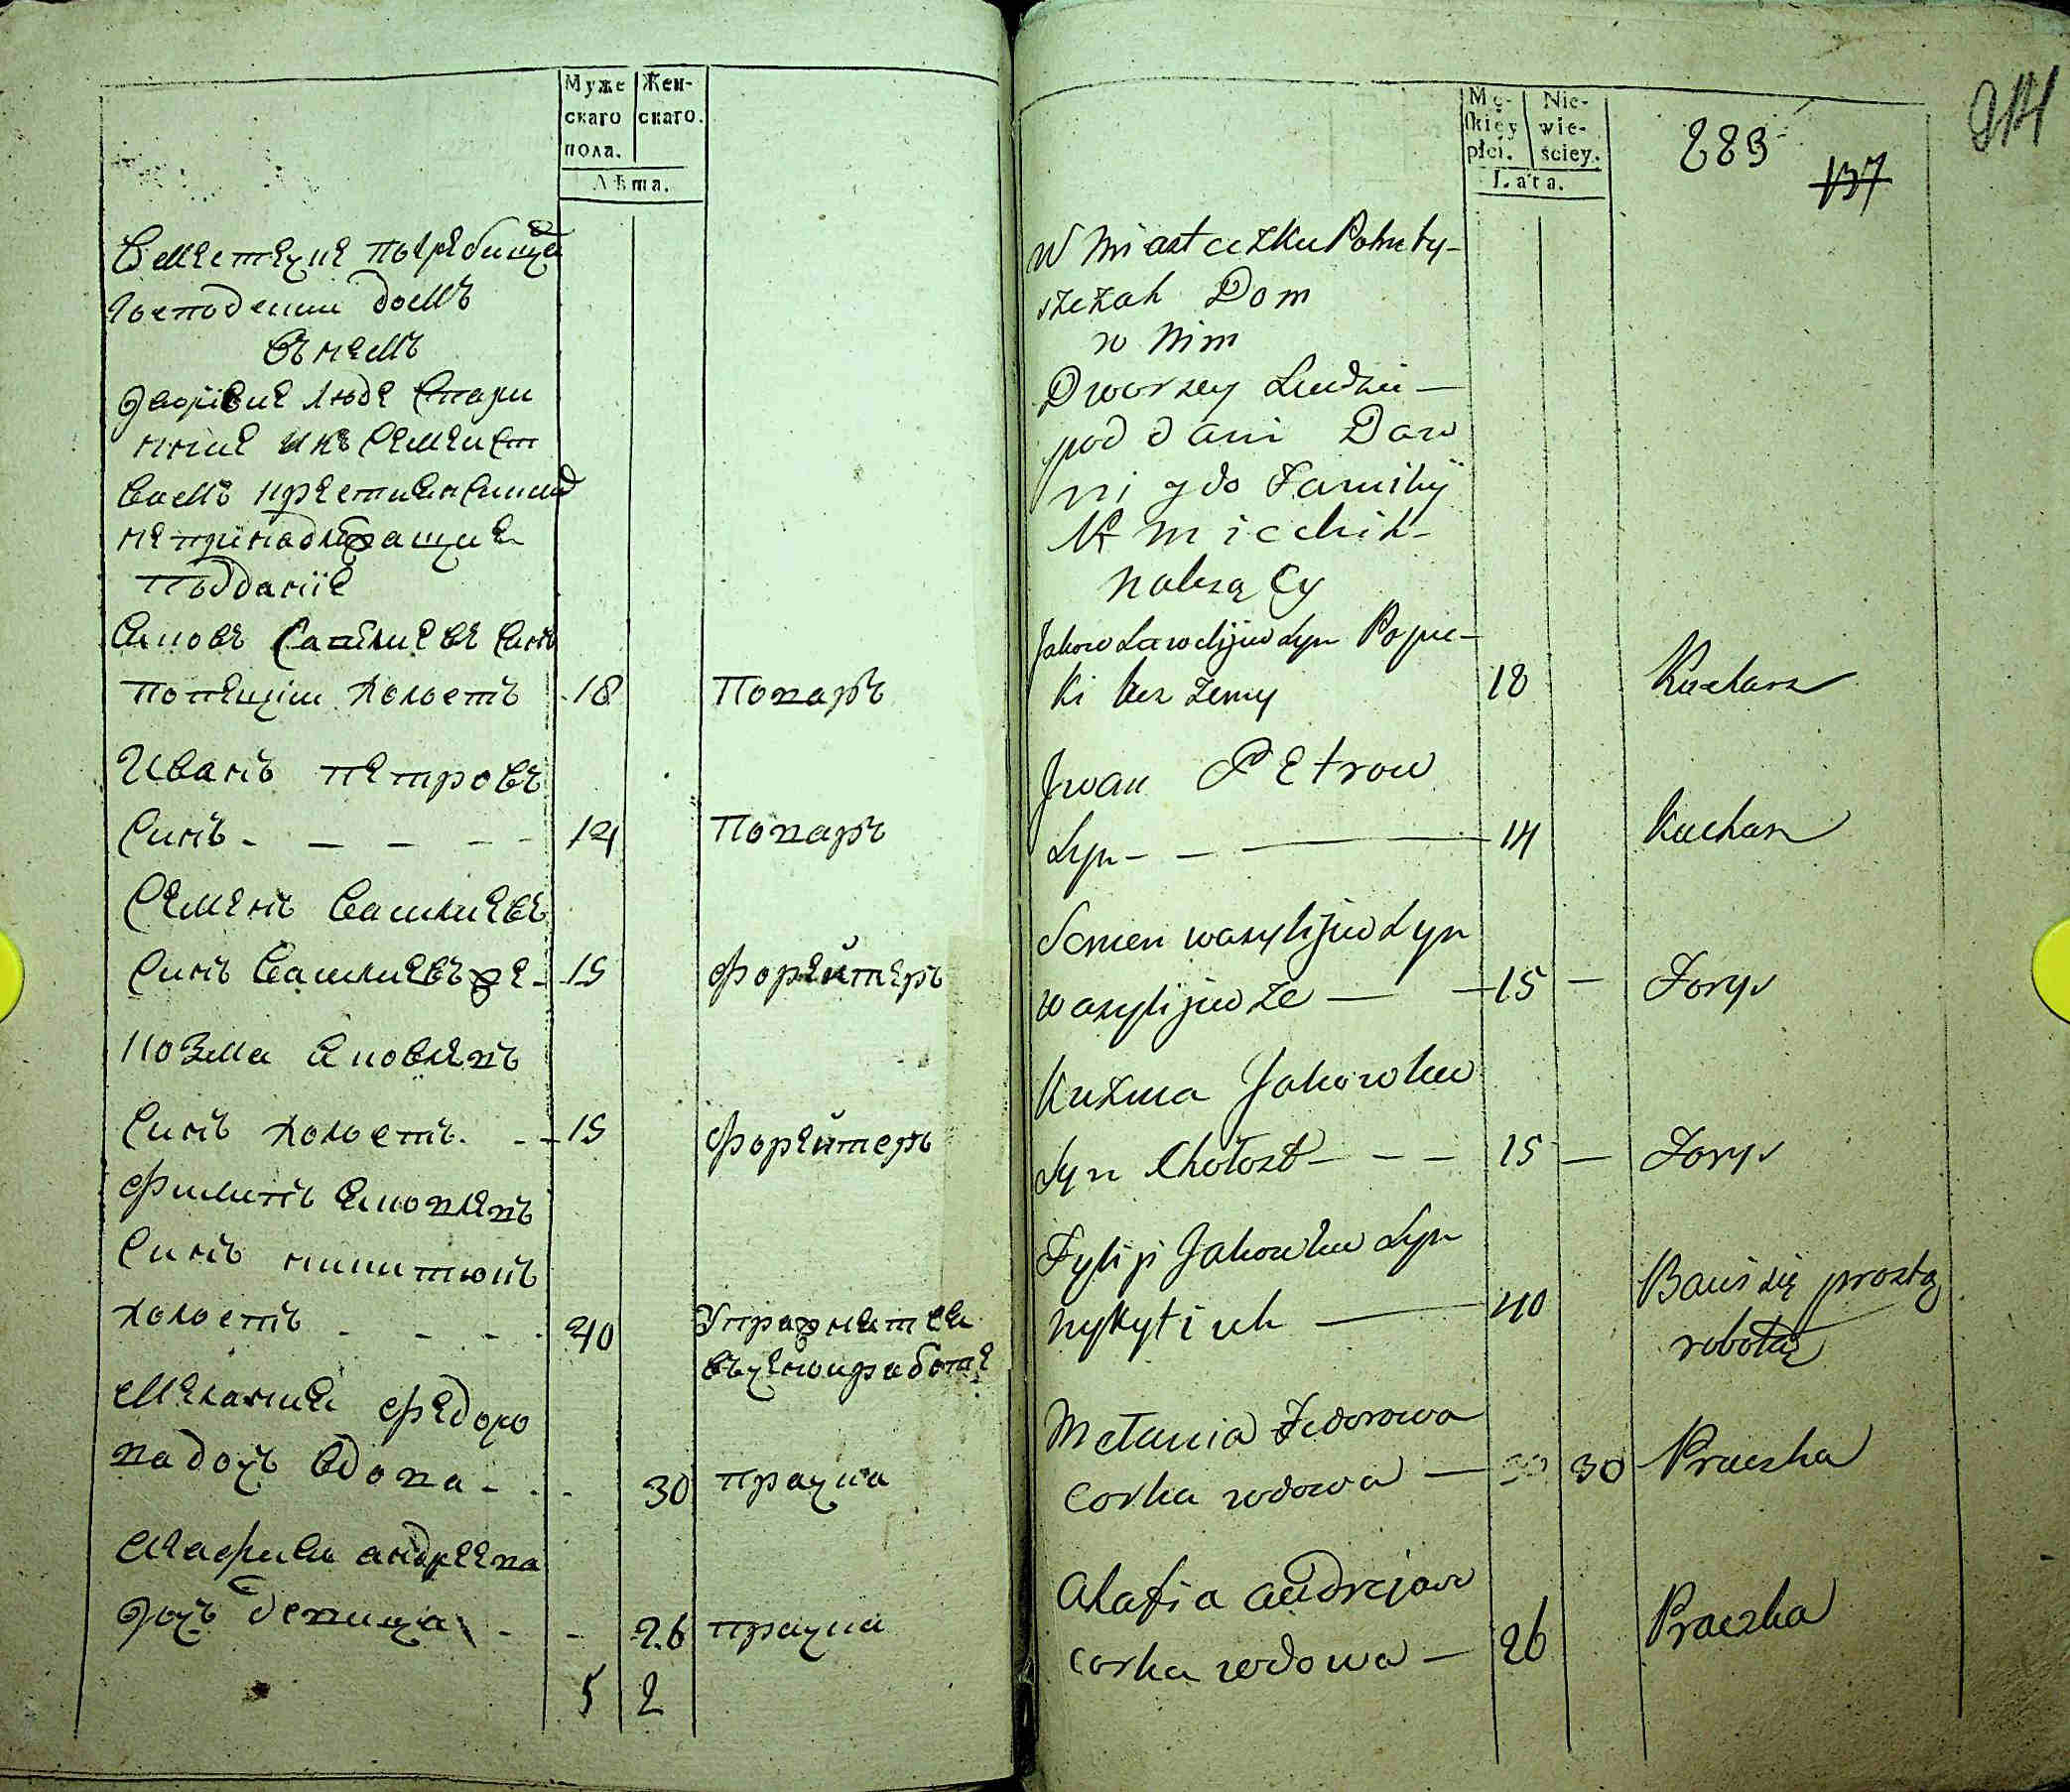 Муже
скаго
пола.
Жен-
скаго.
Лѣта.
Вместечке погребища
Господскии домъ
Въ немъ
дворовие люде Стари
нние
не принадлежащие
подданiе
Яковъ Савелиевъ Синъ
холостъ 18 Поваръ
Иванъ петровъ
Синъ - - - - - 14 Поваръ
Семенъ Василиевъ
Синъ Василиевъ же - 15 форейтеръ
Козма Яковлевъ
Синъ холостъ - - 15 форейтеръ
Филипъ Яковлевъ
Синъ никитюкъ
холостъ - - - - 40 Упражняется
въчерной работе
Мелания федоро
ва дочъ вдова - - - 30 прачка
Агафия андреева
дочъ девица - - 26 прачка
5 2
Mę-
skiey
płci.
Nie-
wie-
ściey.
Lata.
283
137
214
W Miasteczku Pohreby-
szczah Dom
w Nim
Dworscy Ludzie -
poddani Daw
ni
nalezą Cy
Jakow Sawelijew Syn
ki bez zeny 18 Kucharz
Jwan PEtrow
Syn - - - 14 Kucharz
Semen wasylijew Syn
wasylijew ze - - 15 - Foryś
Kuzma Jakowlew
Syn Chołost - - - 15 - Foryś
Fylip Jakowlew Syn
nykytiuk - 40 Bawi się prostą
robotą
Mełania Fedorowa
corka wdowa - 30 Praczka
Ahafia andrejow
corka wdowa - 26 Praczka